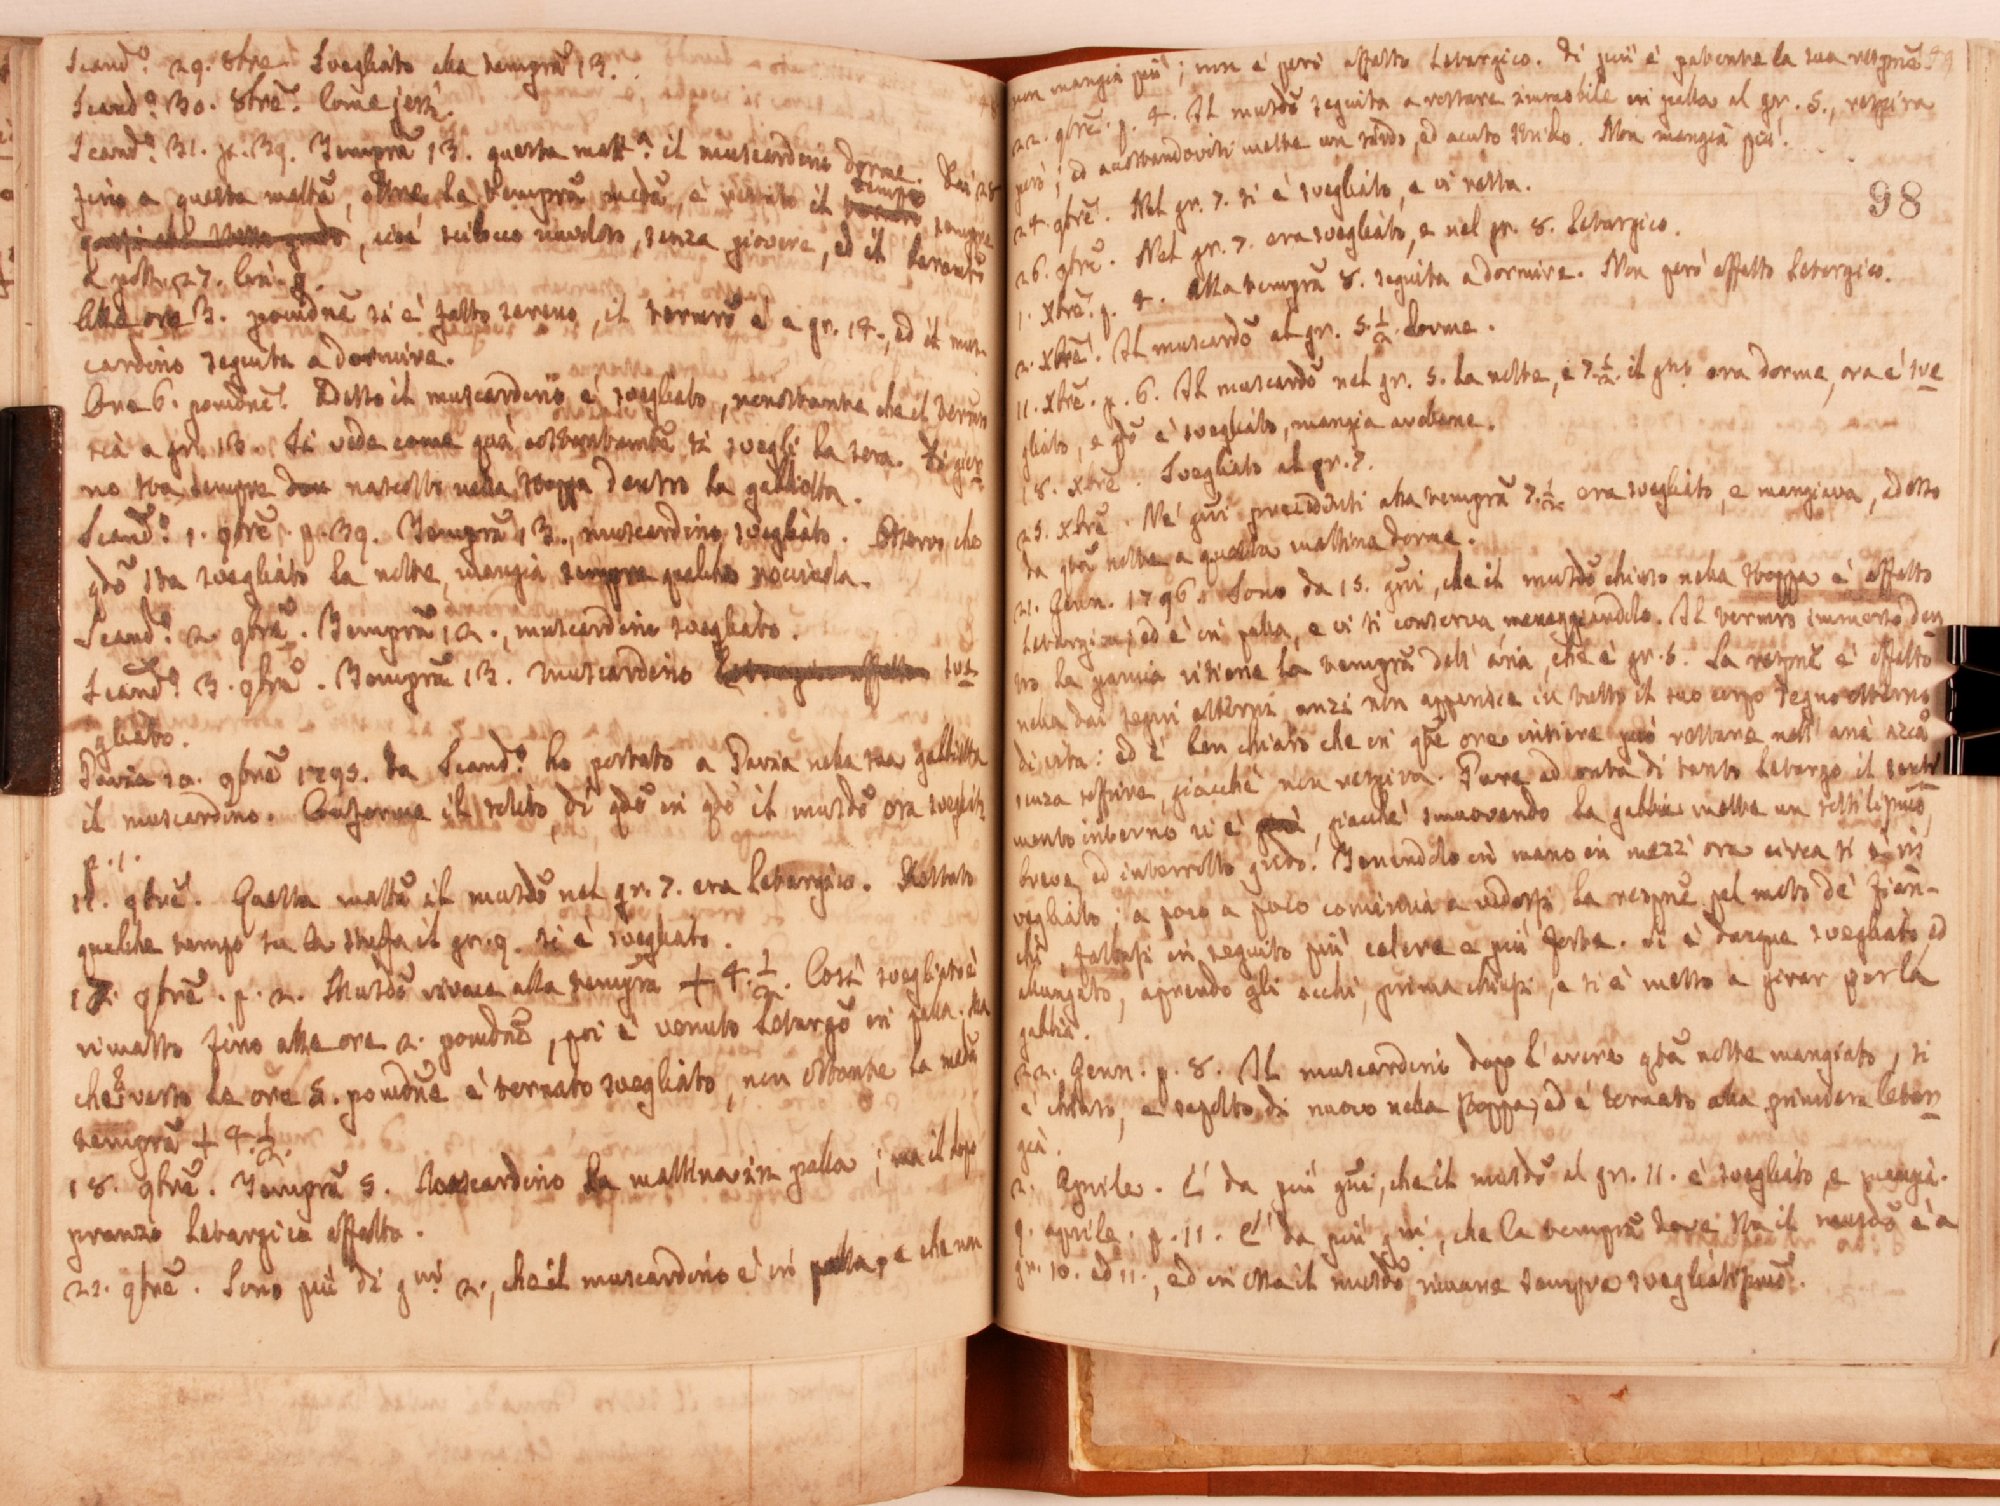 Scand.º 29. 8bre. Svegliato alla temprã 13.
Scand.º 30. 8brẽ. Come jeri.
Scand.º 31. p. 39. Temprã 13. questa matt.ª il muscardino dorme. Dai 28
fino a questa mattã, oltre la temprã medã, è restato il tempo sempre
cioè scilocco nuvoloso, senza piovere, ed il baromtõ
a poll. 27. lin. 9.
Alle ore 3. pomdnẽ si è fatto sereno, il termrõ è a gr. 14., ed il mus-
cardino seguita a dormire.
Ore 6. pomdnẽ. Detto il muscardino è svegliato, nonostante che il termrõ
sia a gr. 13. Si vede come quasi costantemtẽ si svegli la sera. Di gior
no sta sempre nascosto nella stoppa dentro la gabbiotta.
Scand.º 1. 9brẽ. p. 39. Temprã 13., muscardino svegliato. Osservo, che
qdõ sta svegliato la notte, mangia sempre qualche nocciola.
Scand.º 2. 9brẽ. Temprã 12., muscardino svegliato.
Scand.º 3. 9brẽ. Temprã 13. Muscardino letargico affatto sve
gliato.
Pavia 10. 9brẽ 1795. Da Scand.º ho portato a Pavia nella sua gabbiotta
il muscardino. Conforme il solito, di qdõ in qdõ il muscdõ ora svegliasi
p. 1.
11. 9brẽ. Questa mattã il muscdõ nel gr. 7. era letargico. Portato
qualche tempo su la stufa il gr. 9. si è svegliato.
17. 9brẽ. p. 2. Muscdõ vivace alla temprã + 4. 1/2. Così svegliato è
rimasto fino alle ore 2. pomdnẽ, poi è venuto letargõ in palla. Ma
che verso le ore 5. pomdne è tornato svegliato, non ostante la medã
temprã + 4. 1/2.
18. 9brẽ. Temprã 5. Muscardino la mattina in palla; ma il dopo
pranzo letargico affatto.
21. 9brẽ. Sono più di gni 2., che il muscardino è in palla, e che non
non mangia più; non è però affatto letargico. Di più è patente la sua respnẽ.
22. 9brẽ. p. 4. Il muscdõ seguita a restare immobile in palla al gr. 5., respira
però; ed accostandovisi mette un sordo, ed acuto strido. Non mangia più.
98
24. 9brẽ. Nel gr. 7. si è svegliato, e vi resta.
26. 9brẽ. Nel gr. 7. era svegliato, e nel gr. 8. letargico.
1. Xbrẽ. p. 4. Alla temprã 8. seguita a dormire. Non però affatto letargico.
2. Xbrẽ. Il muscardõ al gr. 5. 1/2. dorme.
11. Xbrẽ. p. 6. Il muscardõ nel gr. 5. la notte, e 7. 1/2. il gno ora dorme, ora è sve
gliato, e qdõ è svegliato, mangia avellane.
18. Xbrẽ. Svegliato al gr. 7.
25. Xbrẽ. Ne' gni precedenti alla temprã 7. 1/2. era svegliato, e mangiava, adesso
da qtã notte a questa mattina dorme.
21. Genn. 1796. Sono da 15. gni, che il muscdõ chiuso nella stoppa è affatto
letargico; ed è in palla, e vi si conserva maneggiandolo. Il termrõ immerso den
tro la pancia ritiene la temprã dell' aria, che è gr. 5. La respnẽ è affatto
nella dai segni esterni, anzi non apparisce in tutto il suo corpo segno esterno
di vita: ed è ben chiaro che in qte ore intiere può restare nell' aria
senza soffrire, giacchè non respira. Pure ad onta di tanto letargo il senti
mento interno vi è, giacchè smuovendo la gabbia mette un sottilissimõ
breve, ed interrotto grido. Tenendolo in mano in mezz' ora circa si è ri
vegliato: a poco a poco comincia a vedersi la respnẽ pel moto de' fian-
chi, fattasi in seguito più celere e più forte. Si è dunque svegliato, ed
allungato, aprendo gli occhi, prima chiusi, e si è messo a girar per la
gabbia.
22. Genn. p. 8. Il muscardino dopo l'avere qtã notte mangiato, si
è chiuso, e sepolto di nuovo nella stoppa, ed è tornato alla primiera letar
gia.
2. Aprile. È da più gni, che il muscdõ al gr. 11. è svegliato, e mangia.
9. aprile. p. 11. È da più gni, che la temprã dove sta il muscdõ è a
gr. 10. ed 11., ed in essa il muscdõ rimane sempre svegliatissimõ.